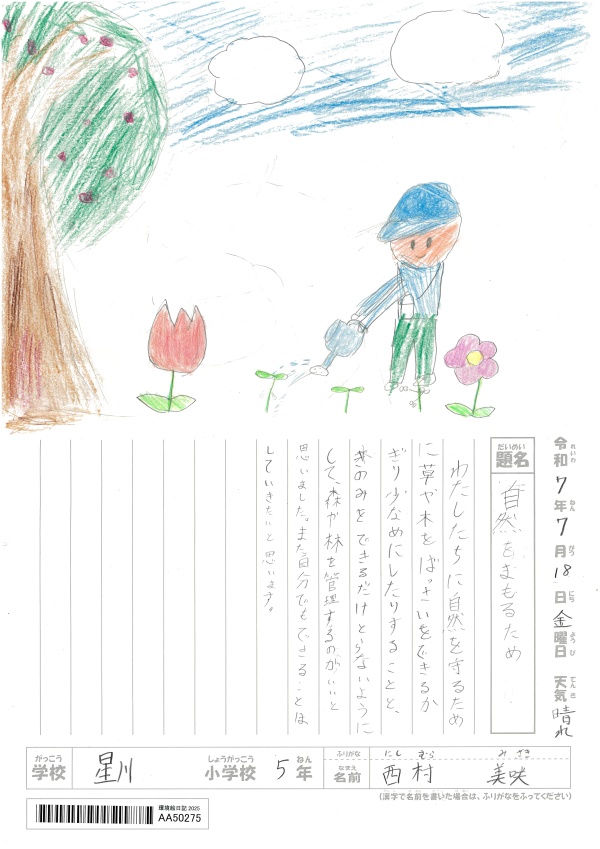 令和7年7月18日金曜日 天気 晴れ
題名 自然をまもるため
わたしたちに自然を守るため
に草や木をばっさいをできるか
ぎり少なめにしたりすることと、
木のみをできるだけとらないように
して、森や林を管理するのがいいと
思いました。また自分でもできることは
していきたいと思います。
学校 星川 小学校 5年 名前 西村 美咲
がっこう しょうがっこう ねん ふりがな なまえ にし むら み さき
(漢字で名前を書いた場合は、ふりがなをふってください)
環境絵日記 2025
AA50275